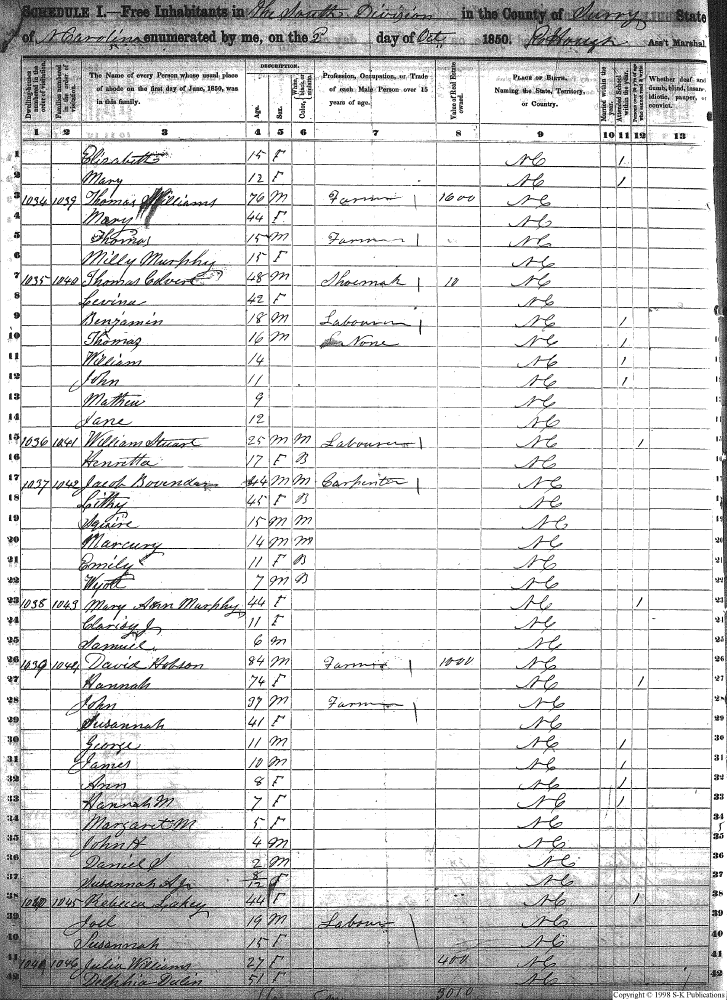 SCHEDULE I.—Free Inhabitants in The South Division in the County of Surry State
of N Carolina enumerated by me, on the 2 day of Oct. 1850. Ass't Marshal.
DESCRIPTION.
The Name of every Person whose usual place of abode on the first day of June, 1850, was in this family.
Age.
Sex.
Profession, Occupation, or Trade of each Male Person over 15 years of age.
Value of Real Estate
PLACE OF BIRTH. Naming the State, Territory, or Country.
Married within the year.
Attended School within the year.
Whether deaf and dumb, blind, insane, idiotic, pauper, or convict.
1 2 3 4 5 6 7 8 9 10 11 12 13
1 Elizabeth 15 F NC 1
2 Mary 12 F NC 1
3 1034 1039 Thomas Williams 76 M Farmer 1600 NC
4 Mary 44 F NC
5 Thomas 15 M Farmer NC
6 Milly Murphy 15 F NC
7 1035 1040 Thomas Calvert 48 M Shoemak 10 NC
8 Levina 42 F NC
9 Benjamin 18 M Labourer NC 1
10 Thomas 16 M None NC 1
11 William 14 NC 1
12 John 11 NC 1
13 Mathew 9 NC
14 Jane 12 NC
15 1036 1041 William Stuart 25 M M Labourer NC 1
16 Henrietta 17 F B NC
17 1037 1042 Jacob Bovender 44 M M Carpenter NC
18 45 F B NC
19 Squire 15 M M NC
20 Marcury 14 M M NC
21 Emily 11 F B NC
22 Wyott 7 M B NC
23 1038 1043 Mary Ann Murphy 44 F NC 1
24 Clarisy J 11 F NC
25 Samuel 6 M NC
26 1039 1044 David Hobson 84 M Farmer 1000 NC
27 Hannah 74 F NC 1
28 John 37 M Farmer NC
29 Susannah 41 F NC
30 George 11 M NC 1
31 James 10 M NC 1
32 Ann 8 F NC 1
33 Hannah M 7 F NC 1
34 Margaret M 5 F NC
35 John H 4 M NC
36 Daniel S 2 M NC
37 Susannah A J 8/12 F NC
38 1040 1045 Rebecca Lakey 44 F NC 1
39 Joel 19 M Labour NC
40 Susannah 15 F NC
41 1041 1046 Julia Williams 27 F 400 NC
42 Delphia Dulin 51 F NC
3010
Copyright © 1998 S-K Publications